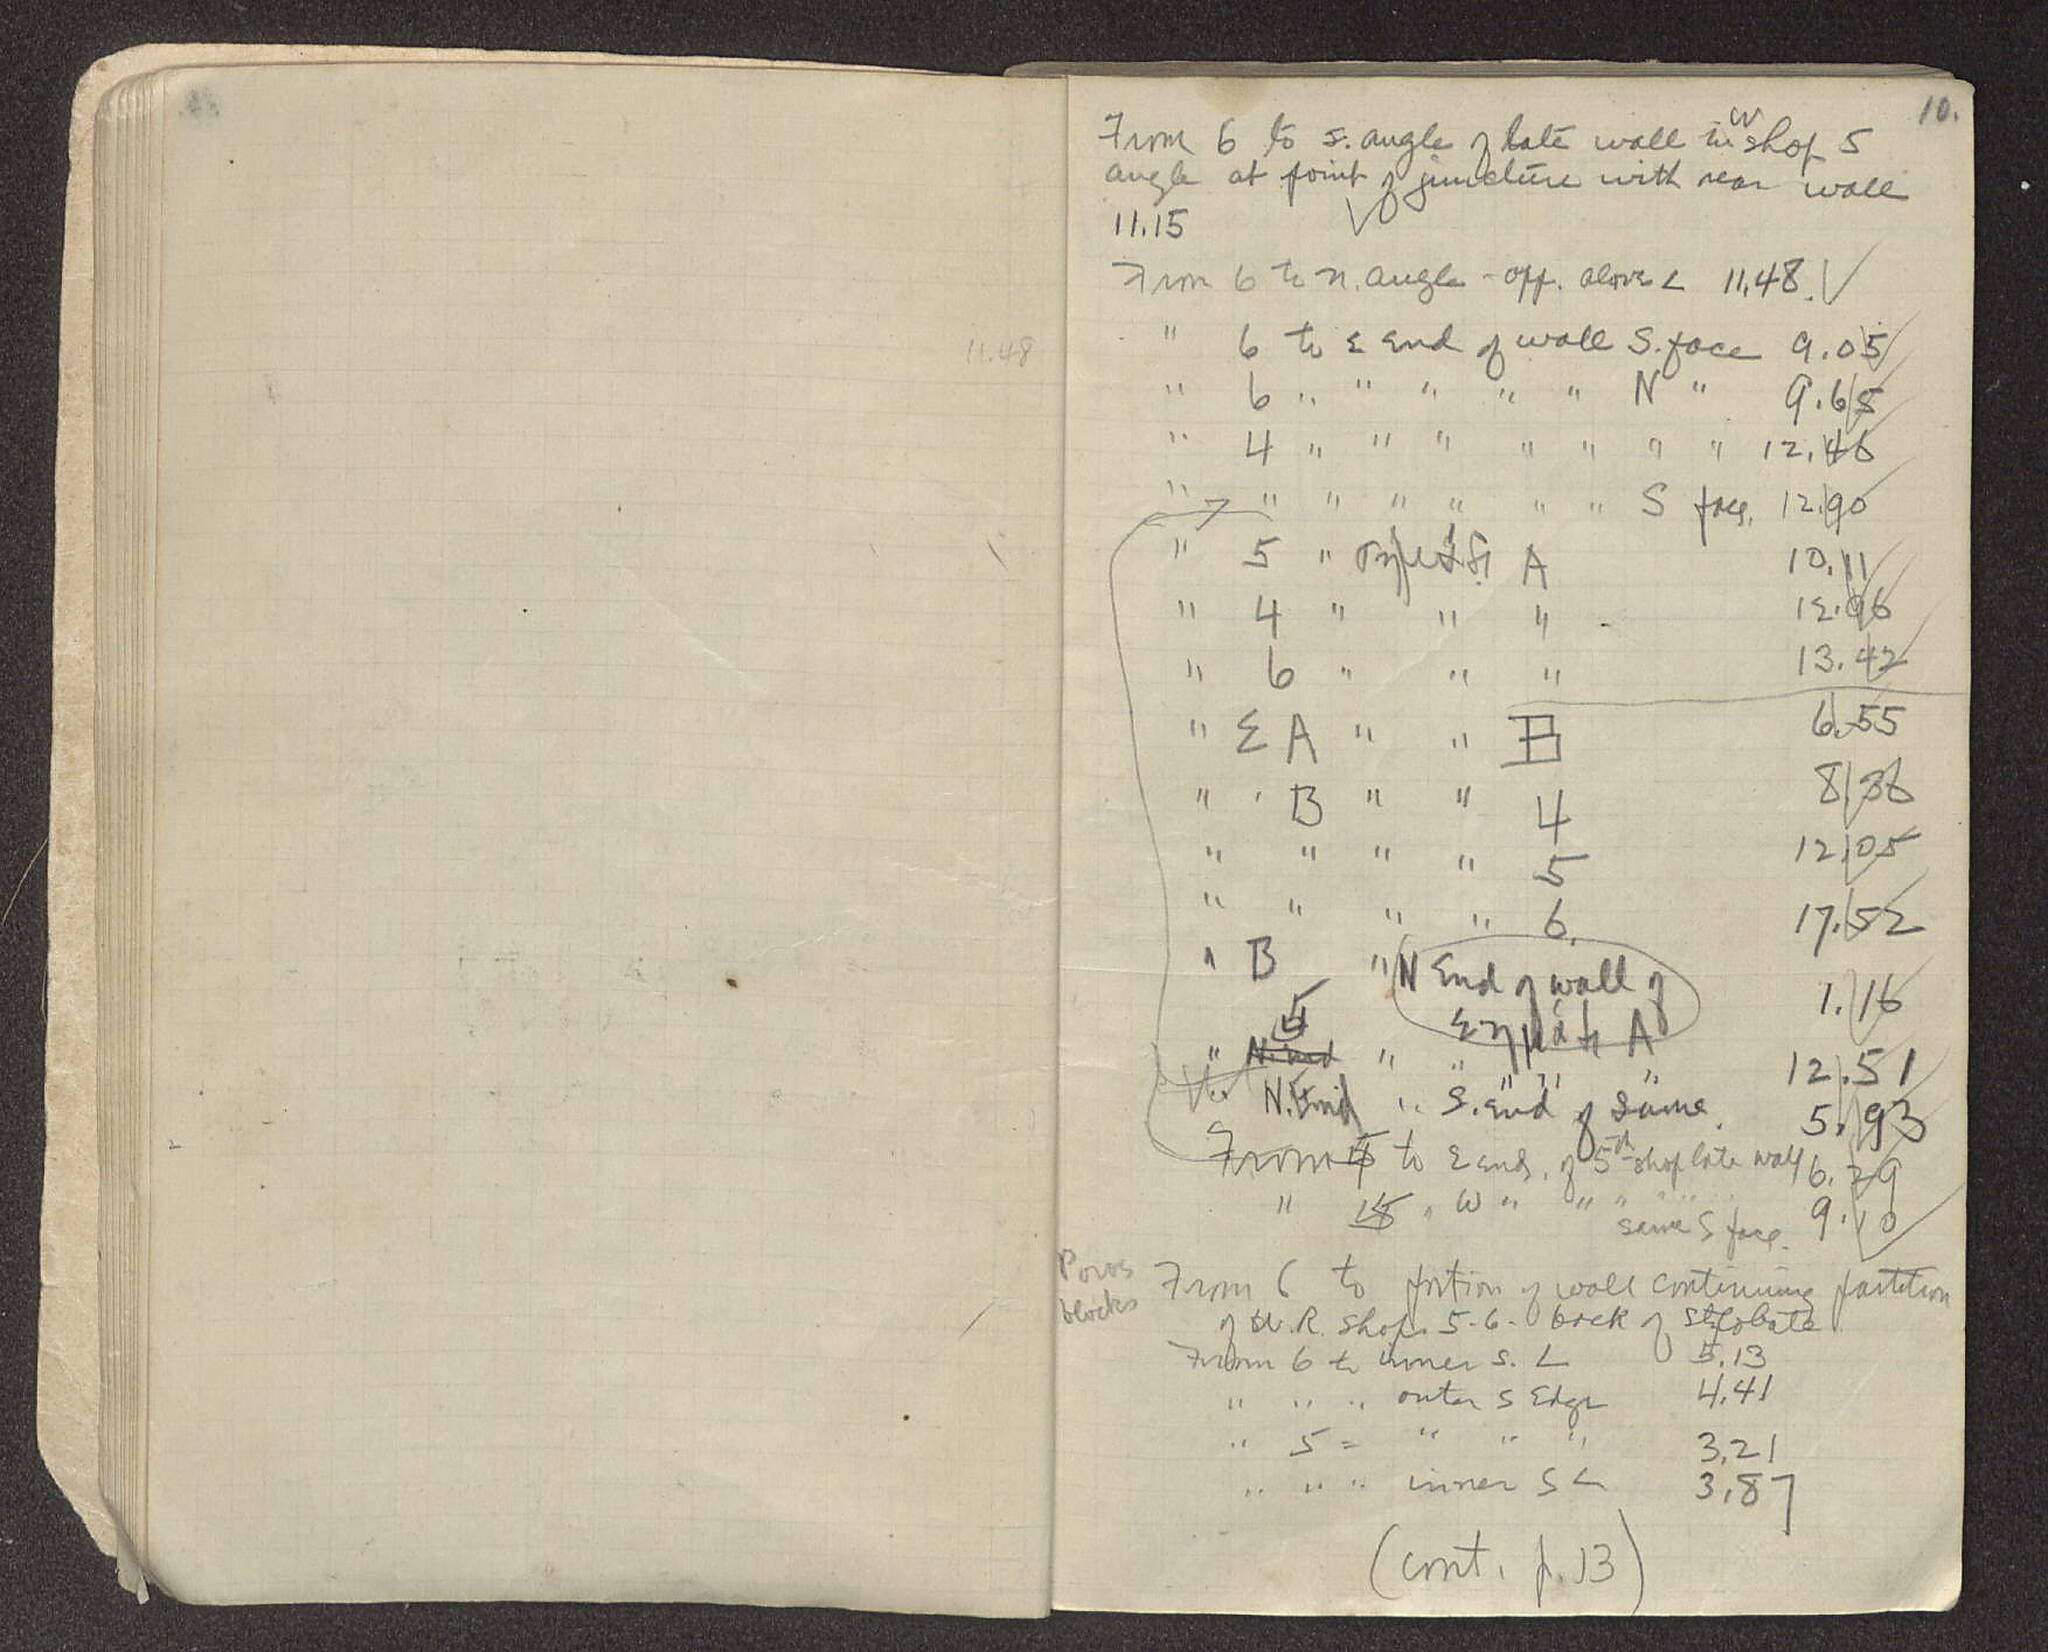 11.48
10.
From 6 to S. angle of late wall in W shop 5
angle at point of juncture with rear wall
11.15
From 6 to N. angle - opp. above < 11.48.
" 6 to E End of wall S. face 9.05
" 6 " " " " " N " 9.65
" 4 " " " " " " " 12.46
" " " " " " " S face. 12.90
" 5 " σημεῖ A 10.11
" 4 " " " 12.96
" 6 " " " 13.42
" Σ A " " B 6.55
" ' B " " 4 8.36
" " " " 5 12.05
" " " " 6. 17.52
" B " N End of wall of
Σημεῖ A 1.16
" N. end 5 " " " " " 12.51
" N. End " S. end of same. 5.93
From 5 to E end. of 5th shop late wall 6.29
" 5 " W " " " " " 9.10
same S face.
Poros
blocks
From 6 to portion of wall continuing partition
of W. R. shops 5-6 - back of stylobate.
From 6 to inner S. < 5.13
" " " outer S Edge 4.41
" 5 = " " " 3.21
" " " inner S < 3.87
(cont. p. 13)